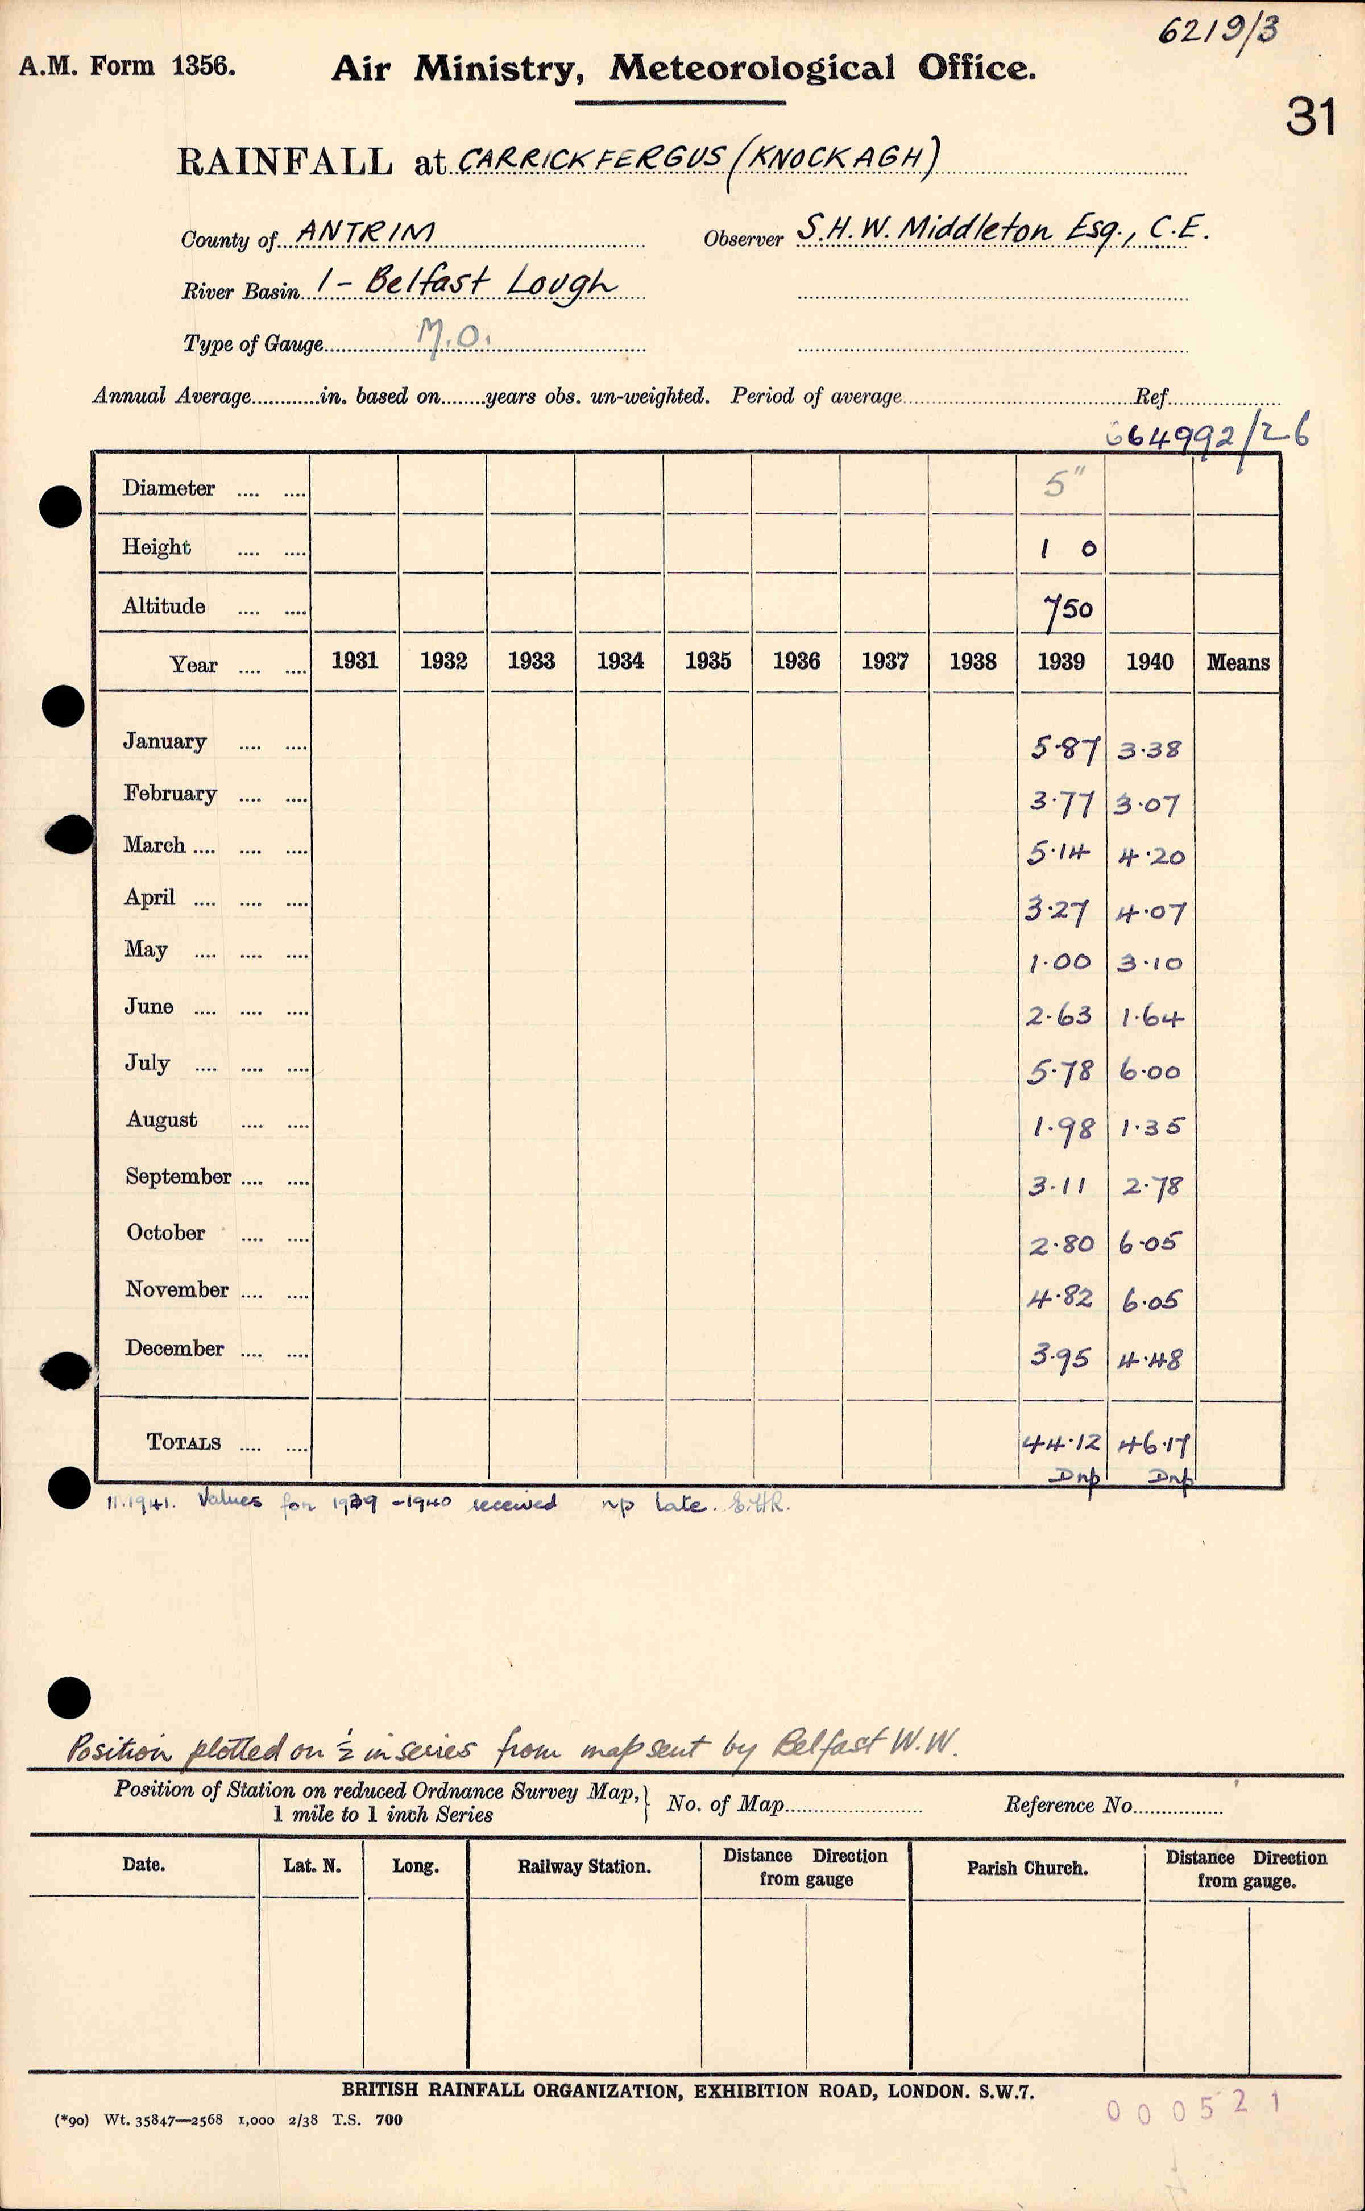 6219/3
A.M. Form 1356. Air Ministry, Meteorological Office.
31
RAINFALL at CARRICKFERGUS (KNOCKAGH)
County of ANTRIM Observer S.H.W. Middleton Esq., C.E.
River Basin 1 - Belfast Lough
Type of Gauge M.O.
Annual Average............in. based on........years obs. un-weighted. Period of average.......... Ref..........
664992/26
Diameter .... .... 5"
Height .... .... 1 0
Altitude .... .... 750
Year .... .... 1931 1932 1933 1934 1935 1936 1937 1938 1939 1940 Means
January .... .... 5.87 3.38
February .... .... 3.77 3.07
March .... .... .... 5.14 4.20
April .... .... .... 3.27 4.07
May .... .... .... 1.00 3.10
June .... .... .... 2.63 1.64
July .... .... .... 5.78 6.00
August .... .... 1.98 1.35
September .... .... 3.11 2.78
October .... .... 2.80 6.05
November .... .... 4.82 6.05
December .... .... 3.95 4.48
TOTALS .... .... 44.12 46.17
Dnp Dnp
11.1941. Values for 1939 - 1940 received np late. E.H.R.
Position plotted on ½ in series from map sent by Belfast W.W.
Position of Station on reduced Ordnance Survey Map, } No. of Map.......... Reference No..........
1 mile to 1 inch Series
Date. Lat. N. Long. Railway Station. Distance Direction from gauge Parish Church. Distance Direction from gauge.
BRITISH RAINFALL ORGANIZATION, EXHIBITION ROAD, LONDON. S.W.7.
(*90) Wt. 35847—2568 1,000 2/38 T.S. 700
000521